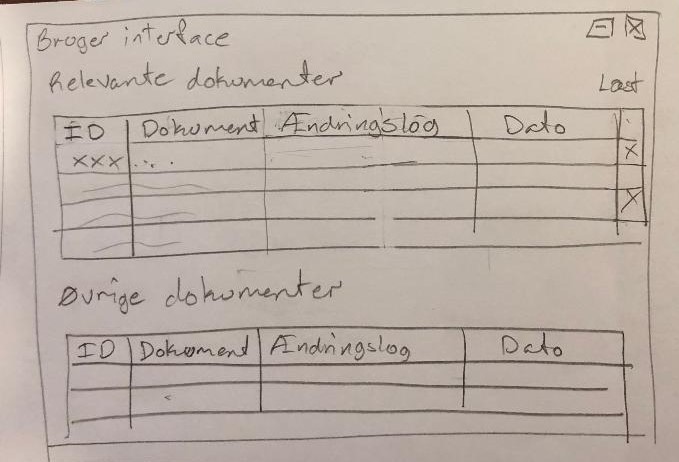 Bruger interface
Relevante dokumenter Læst
ID Dokument Ændringslog Dato
xxx ... X
X
Øvrige dokumenter
ID Dokument Ændringslog Dato